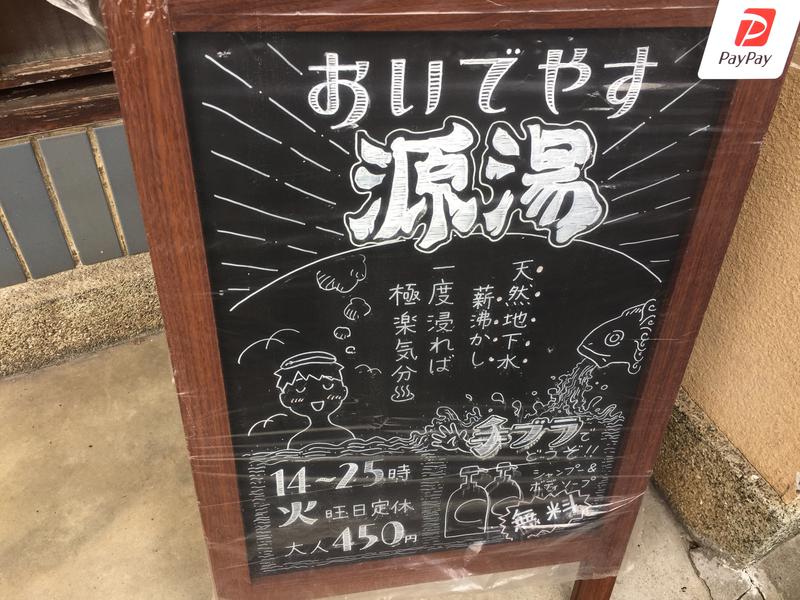 PayPay
おいでやす
源湯
天然地下水
薪沸かし
一度浸れば
極楽気分♨
手ブラで
どうぞ!!
シャンプー&
ボディソープ
無料
14~25時
火曜日定休
大人450円